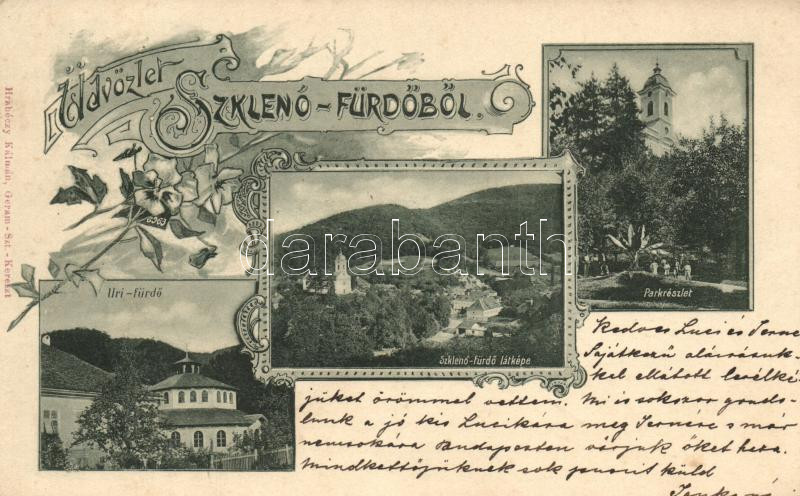 Üdvözlet
SZKLENÓ-FÜRDŐBŐL.
Hrabéczy Kálmán, Geram-Szt.-Kereszt
6563
Uri-fürdő
Szklenó-fürdő látképe
Parkrészlet
darabanth
Kedves Luci és Terne
Sajátkezű aláírásuk-
kel ellátott levelké-
jüket örömmel vettem. Mi is sokszor gondo-
lunk a jó kis Lucikára meg Ternére s már
nemsokára Budapesten várjuk őket haza.
Mindkettőjüknek sok puszit küld